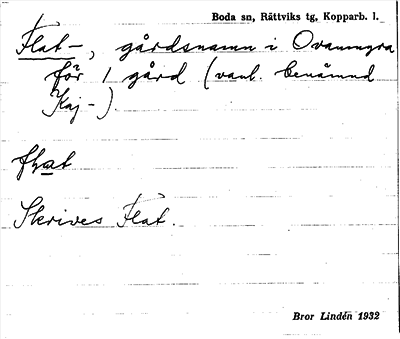 Boda sn, Rättviks tg, Kopparb. l.
Flat-, gårdsnamn i Ovanmyra
för 1 gård (vanl. benämnd
Kaj-)
flat
Skrives Flat.
Bror Lindén 1932